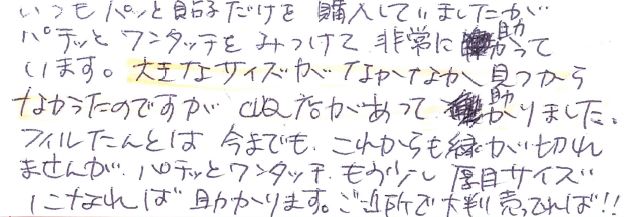 いつもパッと貼るだけを購入していましたが
パチッとワンタッチをみつけて非常に助かって
います。大きなサイズがなかなか見つから
なかったのですが 店があって助かりました。
フィルたんとは今までも、これからも縁が切れ
ませんが、パチッとワンタッチ、もう少し厚目サイズ
になれば助かります。ご近所で大判売ってれば!!